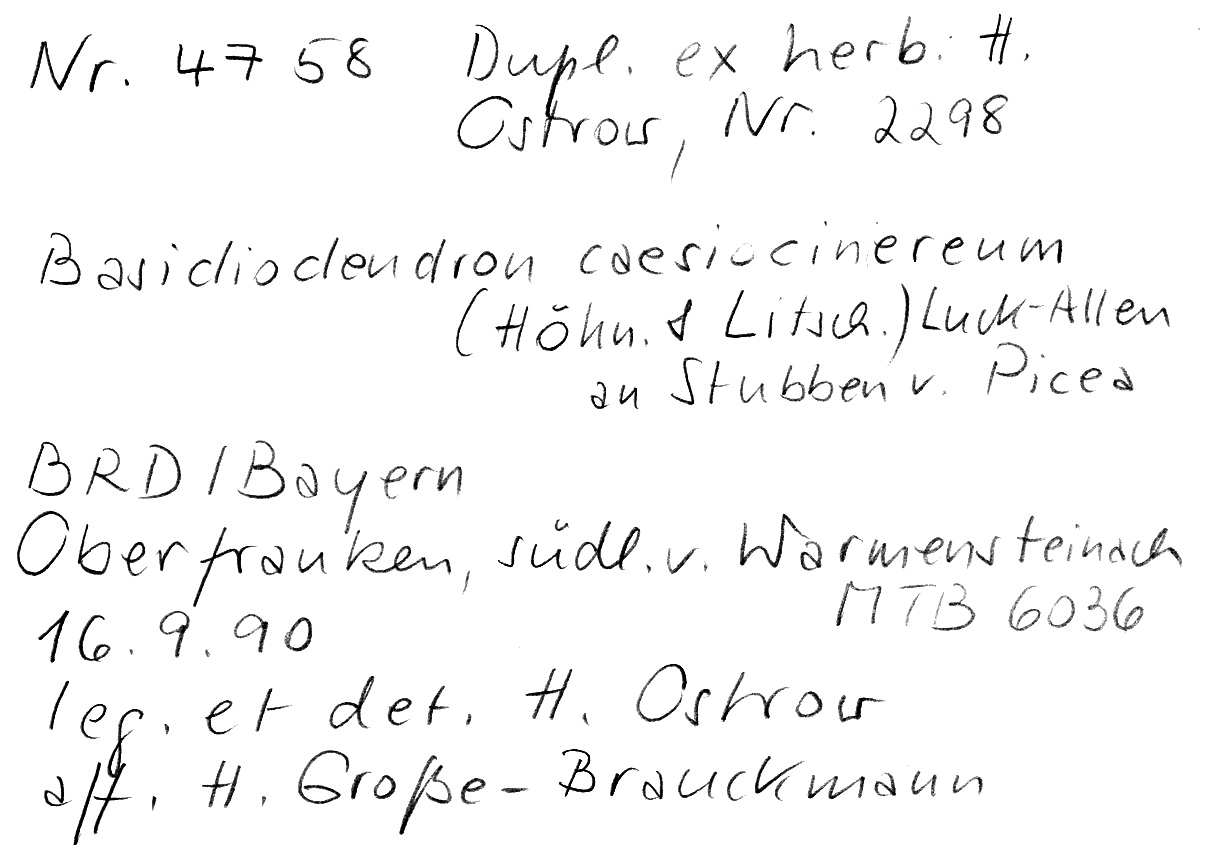 Nr. 4758 Dupl. ex herb. H.
Ostrow, Nr. 2298
Basidiodendron caesiocinereum
(Höhn. & Litsch.) Luck-Allen
an Stubben v. Picea
BRD/Bayern
Oberfranken, südl. v. Warmensteinach
MTB 6036
16.9.90
leg. et det. H. Ostrow
aff. H. Große-Brauckmann